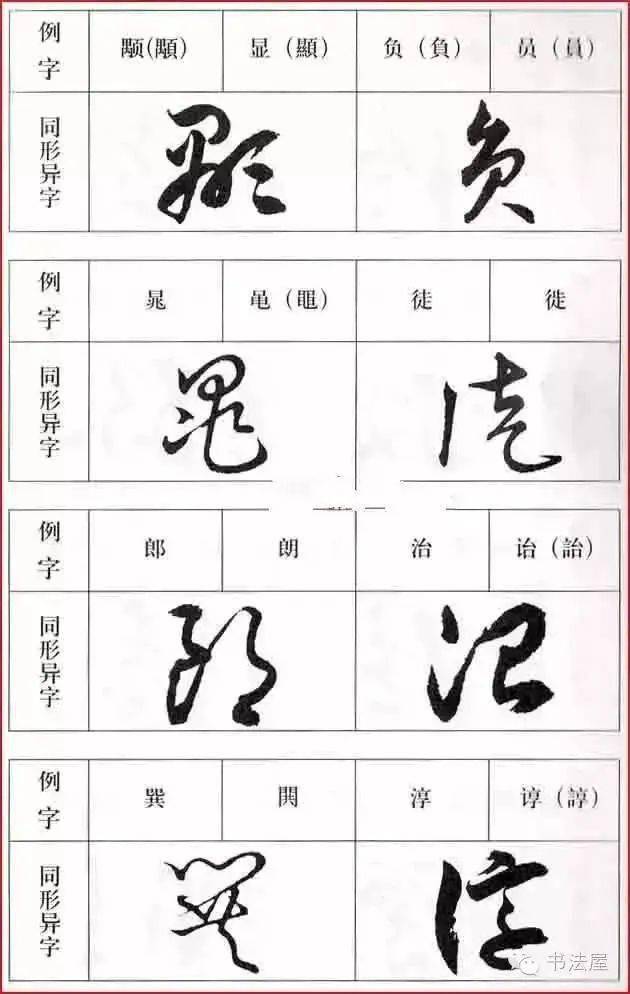 例字 颙(顒) 显（顯） 负（負） 员（員）
同形异字
例字 晁 黾（黽） 徒 徙
同形异字
例字 郎 朗 治 诒（詒）
同形异字
例字 巽 閧 淳 谆（諄）
同形异字
书法屋